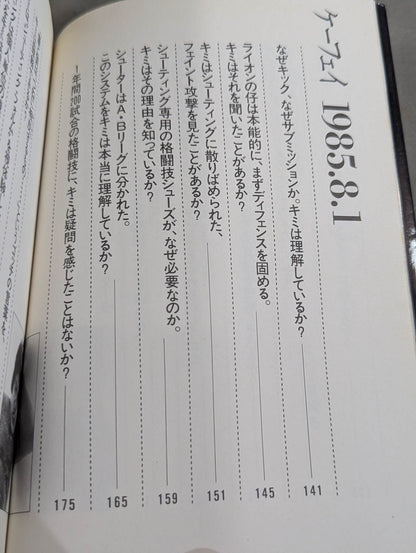 ケーフェイ 1985.8.1
なぜキック、なぜサブミッションか。キミは理解しているか?
141
ライオンの仔は本能的に、まずディフェンスを固める。
キミはそれを聞いたことがあるか?
145
キミはシューティングに散りばめられた、
フェイント攻撃を見たことがあるか?
151
シューティング専用の格闘技シューズが、なぜ必要なのか。
キミはその理由を知っているか?
159
シューターはA・Bリーグに分かれた。
このシステムをキミは本当に理解しているか?
165
1年間200試合の格闘技に、キミは疑問を感じたことはないか?
175